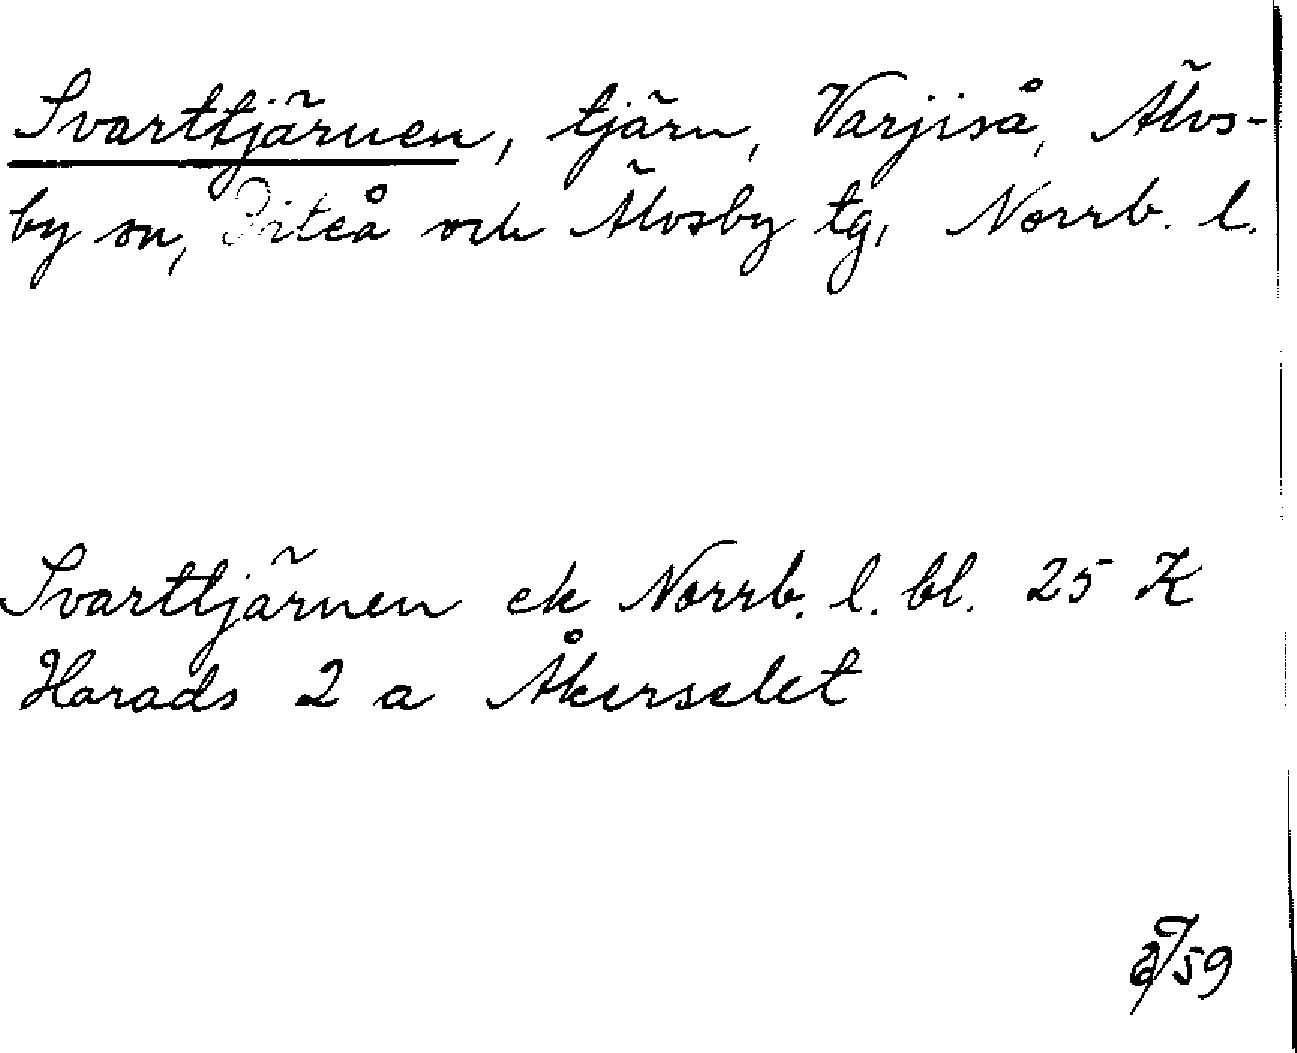 Svarttjärnen, tjärn, Varjiså, Älvs-
by sn, Piteå och Älvsby tg, Norrb. l.
Svarttjärnen ek Norrb. l. bl. 25 K
Harads 2 a Åkerselet
59